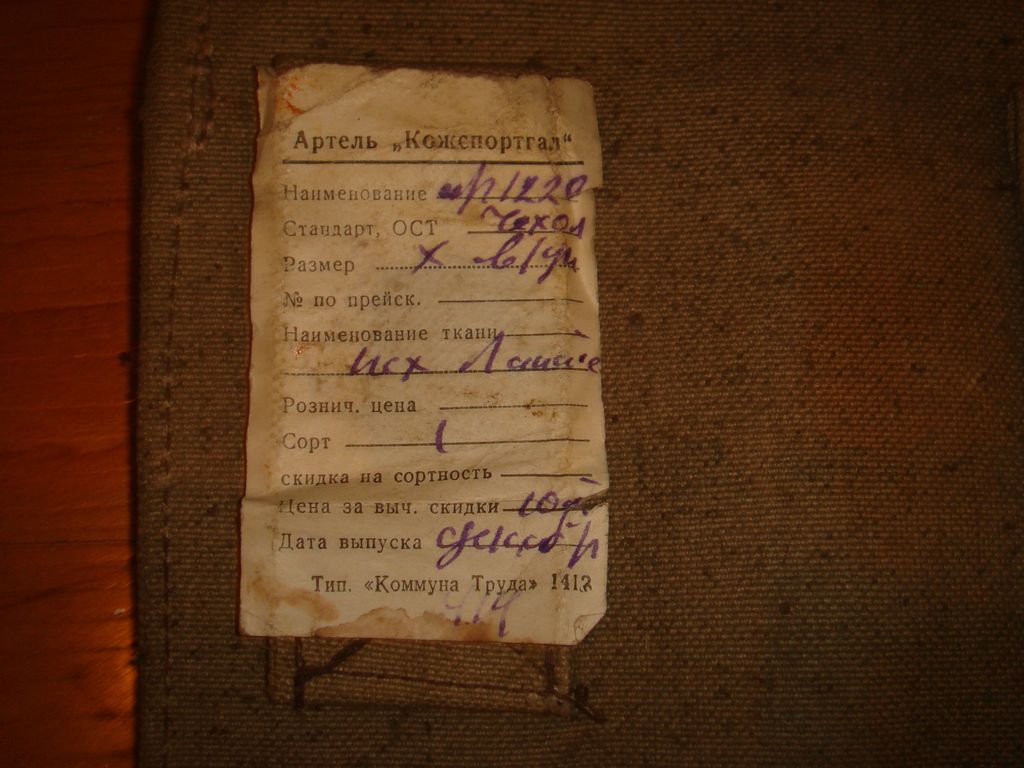 Артель „Кожспортгал“
Наименование
Стандарт, ОСТ Чехол
Размер х в/уп
№ по прейск.
Наименование ткани
Розничн. цена
Сорт 1
скидка на сортность
Цена за выч. скидки
Дата выпуска декабр
Тип. «Коммуна Труда» 1412